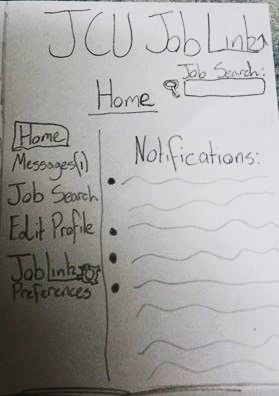 JCU Job Link
Job Search:
Home
Home
Messages(1)
Job Search
Edit Profile
Job Link
Preferences
Notifications: